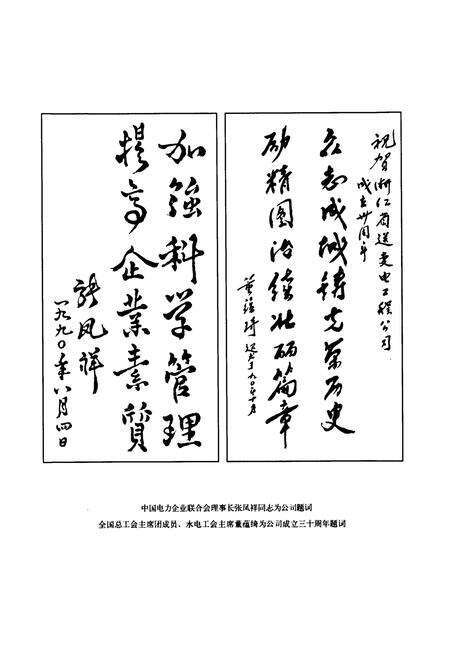 祝贺浙江省送变电工程公司
成立卅周年
众志成城铸光荣历史
励精图治续壮丽篇章
董蕴琦
九〇年十月
加强科学管理
提高企业素质
张凤祥
一九九〇年八月四日
中国电力企业联合会理事长张凤祥同志为公司题词
全国总工会主席团成员、水电工会主席董蕴绮为公司成立三十周年题词